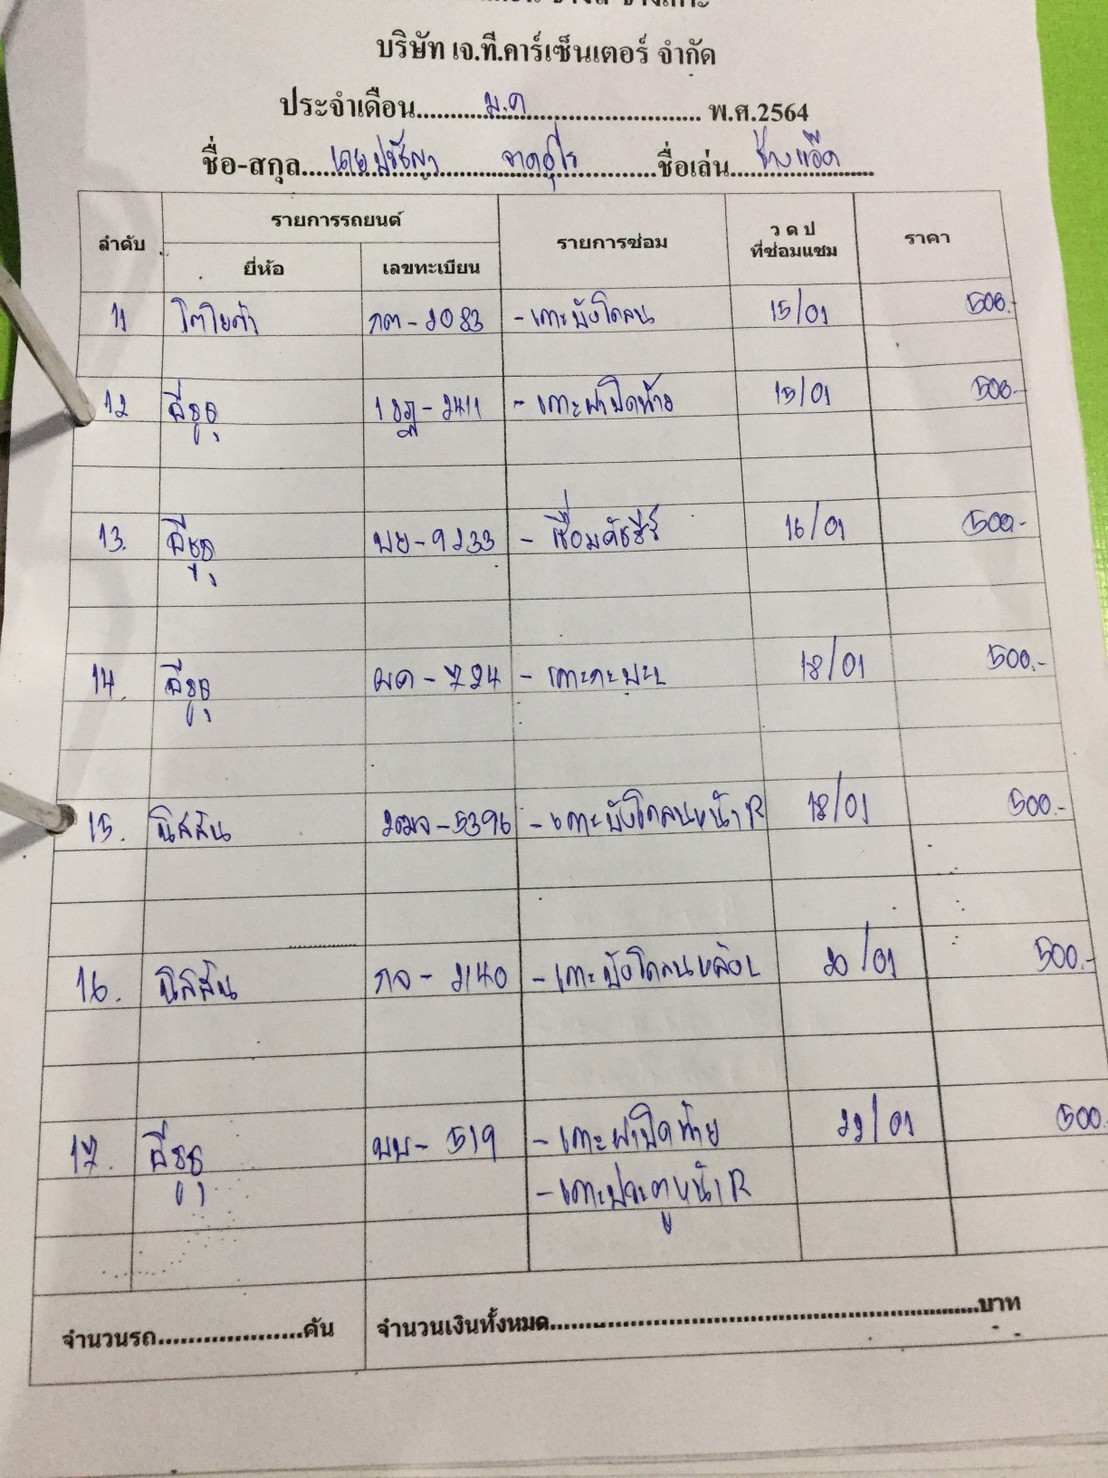 บริษัท เจ.ที.คาร์เซ็นเตอร์ จำกัด
ประจำเดือน ม.ค พ.ศ.2564
ชื่อ-สกุล ชื่อเล่น ช่างแอ๊ด
ลำดับ รายการรถยนต์ รายการซ่อม ว ด ป ที่ซ่อมแซม ราคา
ยี่ห้อ เลขทะเบียน
11 โตโยต้า กต-2083 - เคาะบังโคลน 15/01 500.-
12 อีซูซุ 1ขฎ-2411 - เคาะฝาปิดท้าย 15/01 500.-
13. อีซูซุ บย-9233 - เชื่อมคัชซีร์ 16/01 500.-
14. อีซูซุ ผค-724 - เคาะกะบะ 18/01 500.-
15. นิสสัน 2ฒจ-5396 - เคาะบังโคลนหน้า R 18/01 500.-
16. นิสสัน กจ-2140 - เคาะบังโคลนหลัง L 20/01 500.-
17. อีซูซุ บบ-519 - เคาะฝาปิดท้าย 22/01 500.
- เคาะประตูหน้า R
จำนวนรถ...................คัน จำนวนเงินทั้งหมด..........................................................บาท